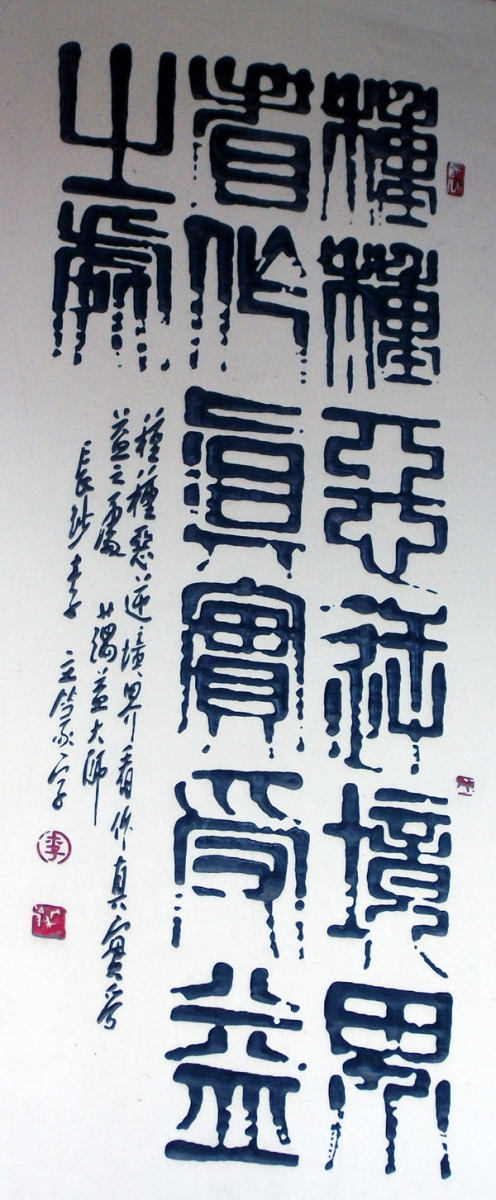 種種惡逆境界
看作眞實受益
之處
種種惡逆境界看作真實受
益之處 蕅益大師
長沙李立篆字
李